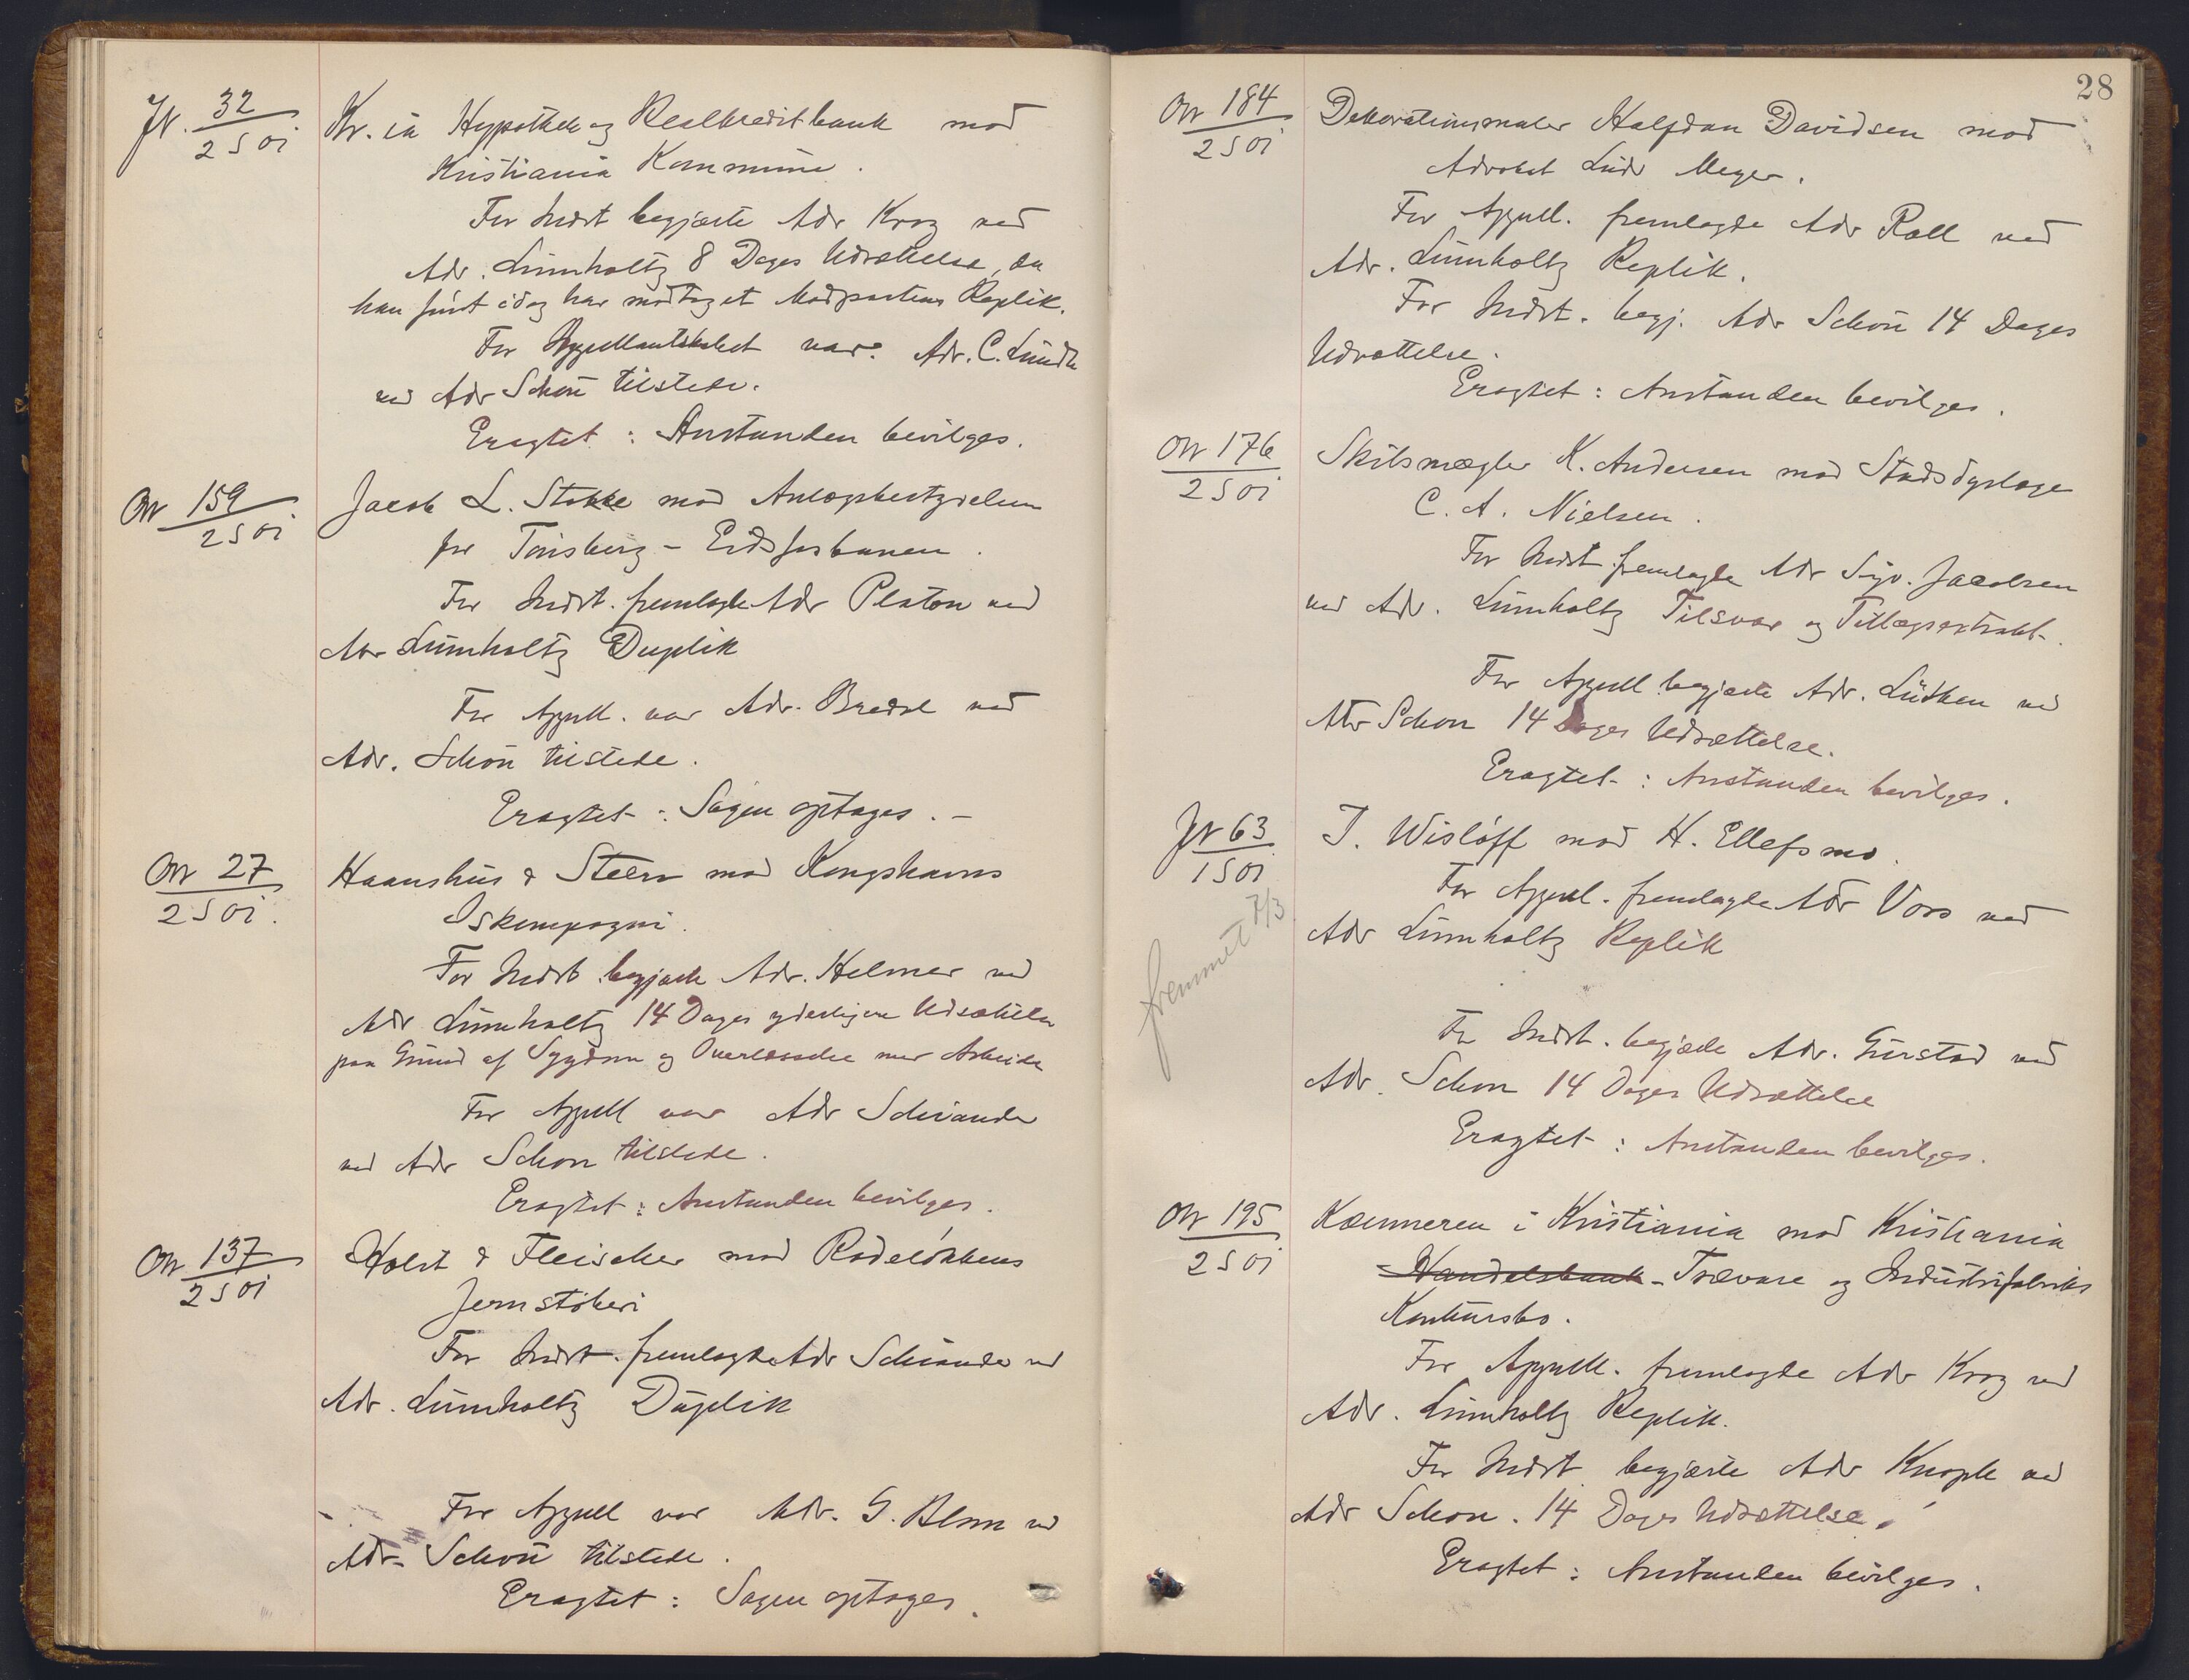 Jr. 32
2 S 01
Kr. ia Hypothek og Realkreditbank mod
Kristiania Kommune.
For Indst begjærte Adv Krog ved
Adv. Lumholtz 8 Dages Udsættelse, da
han først idag har modtaget Modpartens Replik.
For Appellantskabet var Adv. C. Lundh
ved Adv Schøn tilstede.
Eragtet : Anstanden bevilges.
Or 159
2 S 01
Jacob L. Stokke mod Anlægsbestyrelsen
for Tønsberg - Eidsfosbanen.
For Indst. fremlagde Adv Platou ved
Adv Lumholtz Duplik
For Appell. var Adv. Bredal ved
Adv. Schøn tilstede.
Eragtet : Sagen optages. -
Or 27
2 S 01.
Haanshus & Steen mod Kongshavns
Iskompagni.
For Indst. begjærte Adv. Helmer ved
Adv Lumholtz 14 Dages yderligere Udsættelse
paa Grund af Sygdom og Overlæsselse med Arbeide
For Appell var Adv Schiander
ved Adv Schøn tilstede.
Eragtet : Anstanden bevilges.
Or 137
2 S 01
Holst & Fleischer mod Rodeløkkens
Jernstøberi
For Indst. fremlagde Adv Schiander ved
Adv. Lumholtz Duplik
For Appell var Adv. G. Blom ved
Adv. Schøn tilstede.
Eragtet : Sagen optages.
28
Or 184
2 S 01
Dekorationsmaler Halfdan Davidsen mod
Advokat Ludv Meyer.
For Appell. fremlagde Adv Roll ved
Adv. Lumholtz Replik.
For Indst. begj. Adv Schøn 14 Dages
Udsættelse.
Eragtet : Anstanden bevilges.
Or 176
2 S 01
Skibsmægler K. Andersen mod Stadsdyrlæge
C. A. Nielsen.
For Indst. fremlagde Adv Sigv. Jacobsen
ved Adv. Lumholtz Tilsvar og Tillægsextrakt.
For Appell begjærte Adv. Lütken ved
Adv Schøn 14 Dages Udsættelse.
Eragtet : Anstanden bevilges.
Jr 63
1 S 01
fremmet 7/3
T. Wisløff mod H. Ellefsmo.
For Appel. fremlagde Adv Voss ved
Adv Lumholtz Replik
For Indst. begjærte Adv. Gurstad ved
Adv. Schøn 14 Dages Udsættelse
Eragtet : Anstanden bevilges.
Or 195
2 S 01
Kæmneren i Kristiania mod Kristiania
Handelsbank - Trævare og Industrifabriks
Konkursbo.
For Appell. fremlagde Adv Krog ved
Adv. Lumholtz Replik.
For Indst begjærte Adv Knoph ved
Adv Schøn. 14 Dages Udsættelse.
Eragtet : Anstanden bevilges.